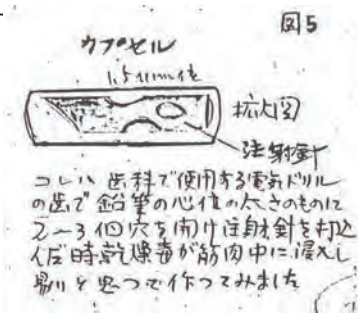 図5
カプセル
1.5ミリ位
拡大図
注射針
コレハ 歯科で使用する電気ドリル
の歯で鉛筆の心位の太さのものに
2〜3個穴を開け注射針を打込
んだ時乾燥毒が筋肉中に浸入し
と思つて作つてみました